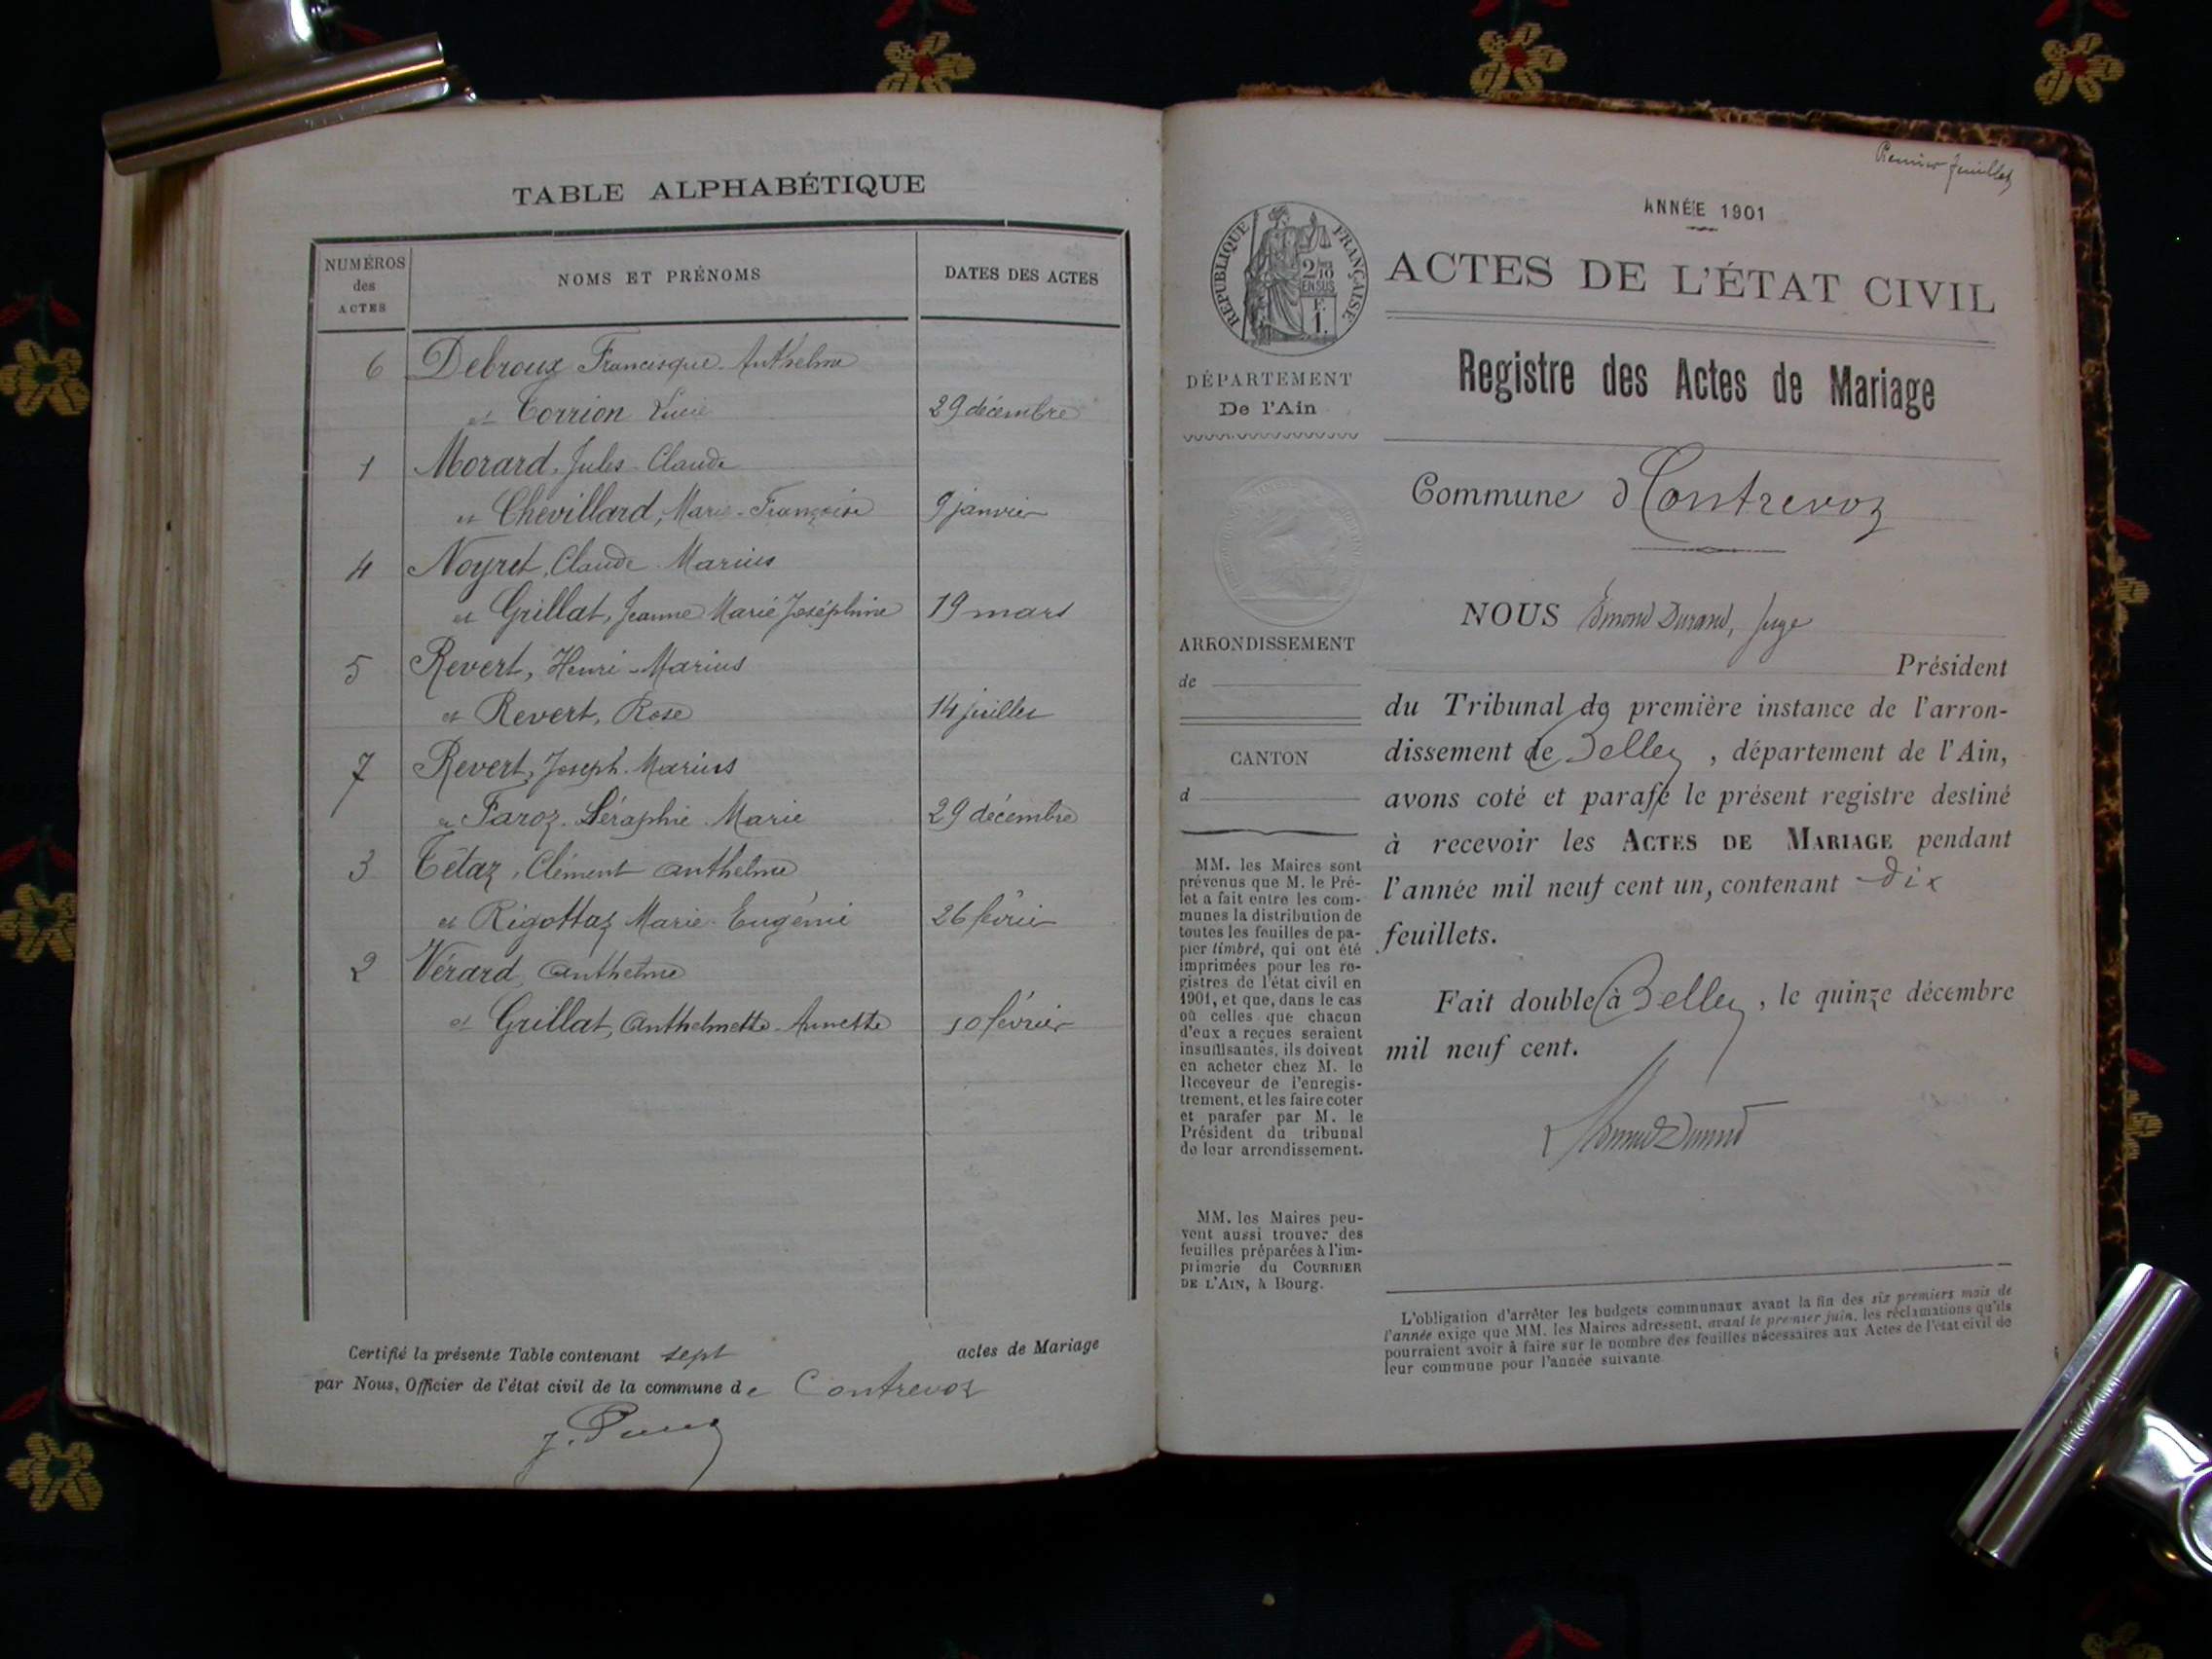 TABLE ALPHABÉTIQUE
NUMÉROS
des
ACTES
NOMS ET PRÉNOMS
DATES DES ACTES
6 Debroux Francisque Anthelme
et Corrion Lucie 29 décembre
1 Morard, Jules Claude
et Chevillard, Marie-Françoise 9 janvier
4 Noyret, Claude Marius
et Grillat, Jeanne Marie Joséphine 19 mars
5 Revert, Henri-Marius
et Revert, Rose 14 juillet
7 Revert, Joseph Marius
et Faroz Séraphie Marie 29 décembre
3 Tétaz, Clément Anthelme
et Rigottaz Marie Eugénie 26 février
2 Vérard, Anthelme
et Grillat, Anthelmette Annette 10 février
Certifié la présente Table contenant sept actes de Mariage
par Nous, Officier de l'état civil de la commune de Contrevoz
Premier feuillet
ANNÉE 1901
RÉPUBLIQUE FRANÇAISE
2/10
EN SUS
F.
1.
ACTES DE L'ÉTAT CIVIL
DÉPARTEMENT
De l'Ain
Registre des Actes de Mariage
Commune d Contrevoz
NOUS Edmond Durand, Juge
Président
du Tribunal de première instance de l'arron-
dissement de Belley, département de l'Ain,
avons coté et parafé le présent registre destiné
à recevoir les ACTES DE MARIAGE pendant
l'année mil neuf cent un, contenant dix
feuillets.
Fait double à Belley, le quinze décembre
mil neuf cent.
Edmond Durand
ARRONDISSEMENT
de
CANTON
d
MM. les Maires sont
prévenus que M. le Pré-
fet a fait entre les com-
munes la distribution de
toutes les feuilles de pa-
pier timbré, qui ont été
imprimées pour les re-
gistres de l'état civil en
1901, et que, dans le cas
où celles que chacun
d'eux a reçues seraient
insuffisantes, ils doivent
en acheter chez M. le
Receveur de l'enregis-
trement, et les faire coter
et parafer par M. le
Président du tribunal
de leur arrondissement.
MM. les Maires peu-
vent aussi trouver des
feuilles préparées à l'im-
primerie du COURRIER
DE L'AIN, à Bourg.
L'obligation d'arrêter les budgets communaux avant la fin des six premiers mois de
l'année exige que MM. les Maires adressent, avant le premier juin, les réclamations qu'ils
pourraient avoir à faire sur le nombre des feuilles nécessaires aux Actes de l'état civil de
leur commune pour l'année suivante.